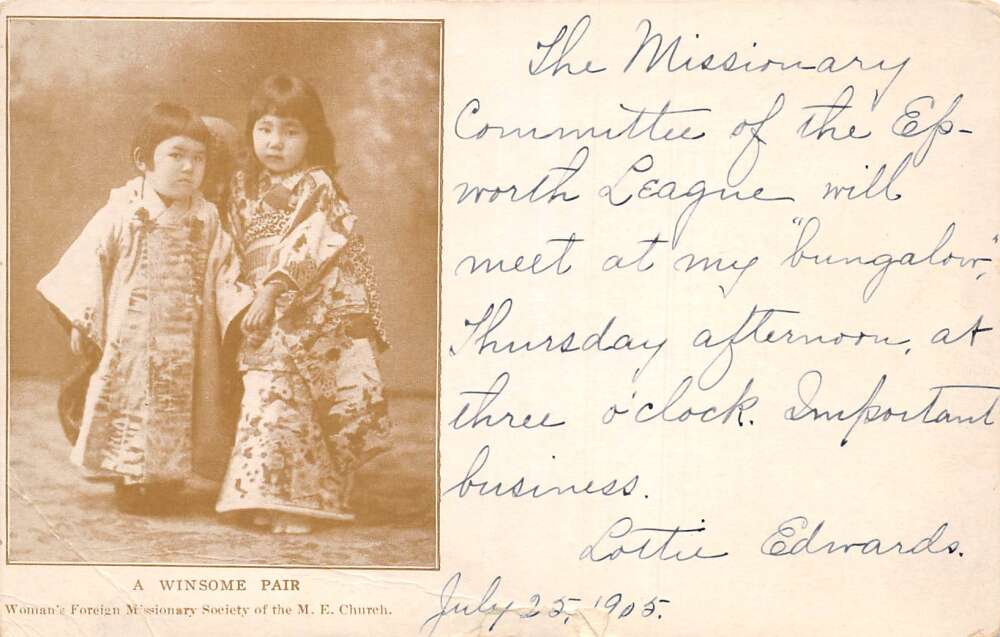 The Missionary
Committee of the Ep-
worth League will
meet at my "bungalow,"
Thursday afternoon, at
three o'clock. Important
business.
Lottie Edwards.
July 25, 1905.
A WINSOME PAIR
Woman's Foreign Missionary Society of the M. E. Church.